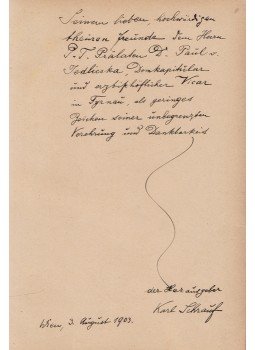 Seinem lieben hochwürdigen
theuren Freunde dem Herrn
P. T. Prälaten Dr. Paul v.
Jedlicska, Domkapitular
und erzbischöflicher Vicar
in Tyrnau, als geringes
Zeichen seiner unbegrenzten
Verehrung und Dankbarkeit
der Herausgeber
Karl Schrauf
Wien, 3. August 1903.